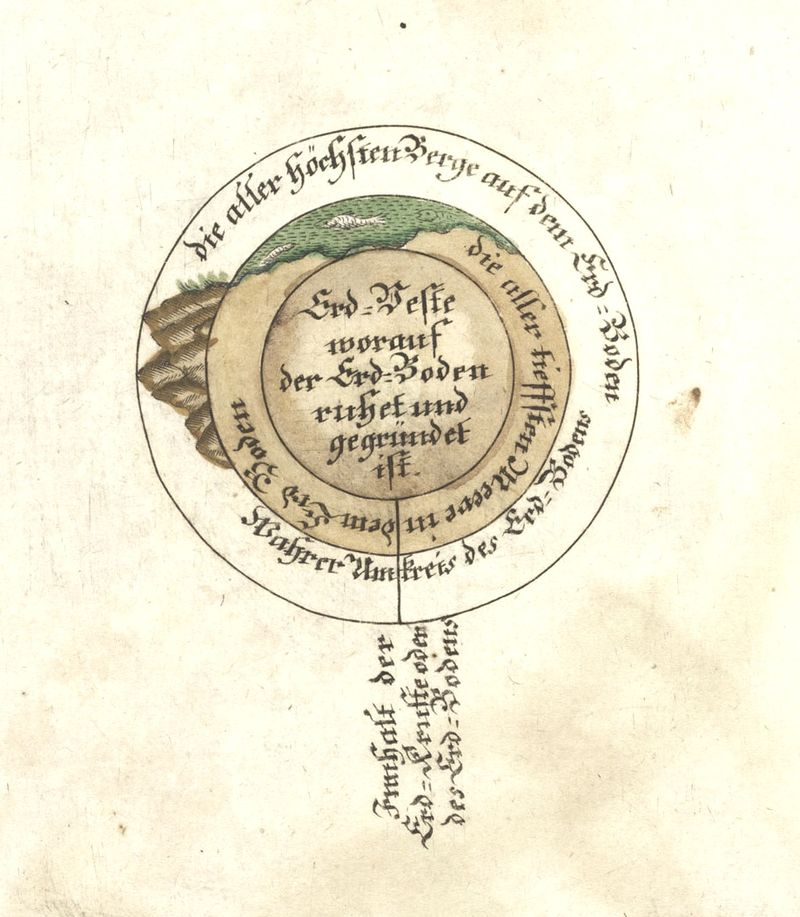 die aller höchsten Berge auf dem Erd=Boden
die aller tieffsten Meere in dem Erd Boden
Erd=Veste
worauf
der Erd=Boden
ruhet und
gegründet
ist.
Wahrer Umkreis des Erd=Bodens
Innhalt der
Erd=Kruste oder
des Erd=Bodens